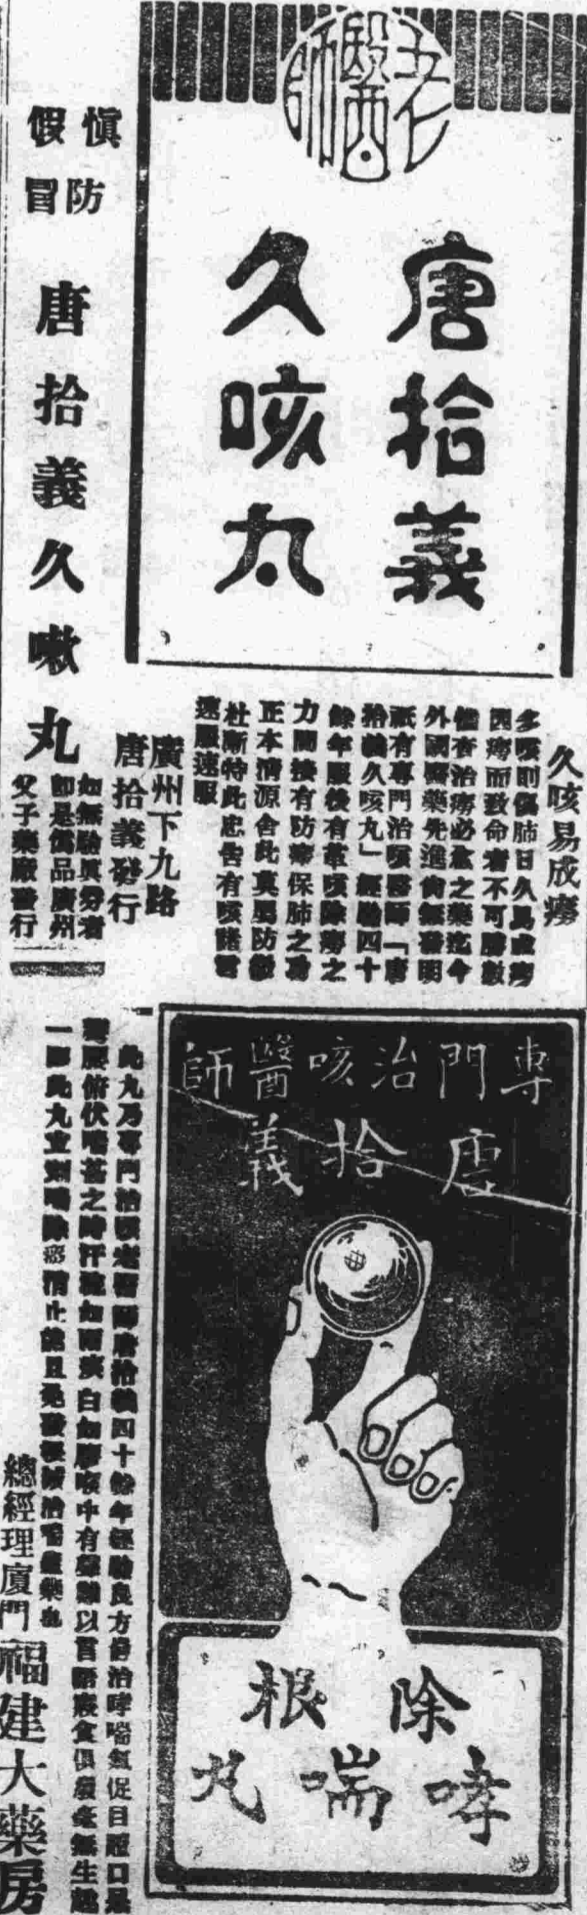 老醫師
唐拾義
久咳丸
久咳易成癆
多咳則傷肺日久易成癆
因癆而致命者不可勝數
惟查治癆必愈之藥迄今
外國醫藥先進尚無發明
祇有專門治咳醫師「唐
拾義久咳丸」經驗四十
餘年服後有革咳除癆之
力間接有防癆保肺之功
正本清源舍此莫屬防微
杜漸特此忠告有咳諸君
速服速服
廣州下九路
唐拾義發行
慎防
假冒
唐拾義久嗽丸
如無驗真券者
即是偽品廣州
父子藥廠發行
專門治咳醫師
唐拾義
除根
哮喘丸
此丸乃專門治咳老醫師唐拾義四十餘年經驗良方善治哮喘氣促目瞪口呆
彎腰俯伏喘甚之時汗流如雨痰白如膠咳中有聲難以言語寢食俱廢毫無生趣
一服此丸立刻喘除痰消止
總經理廈門福建大藥房